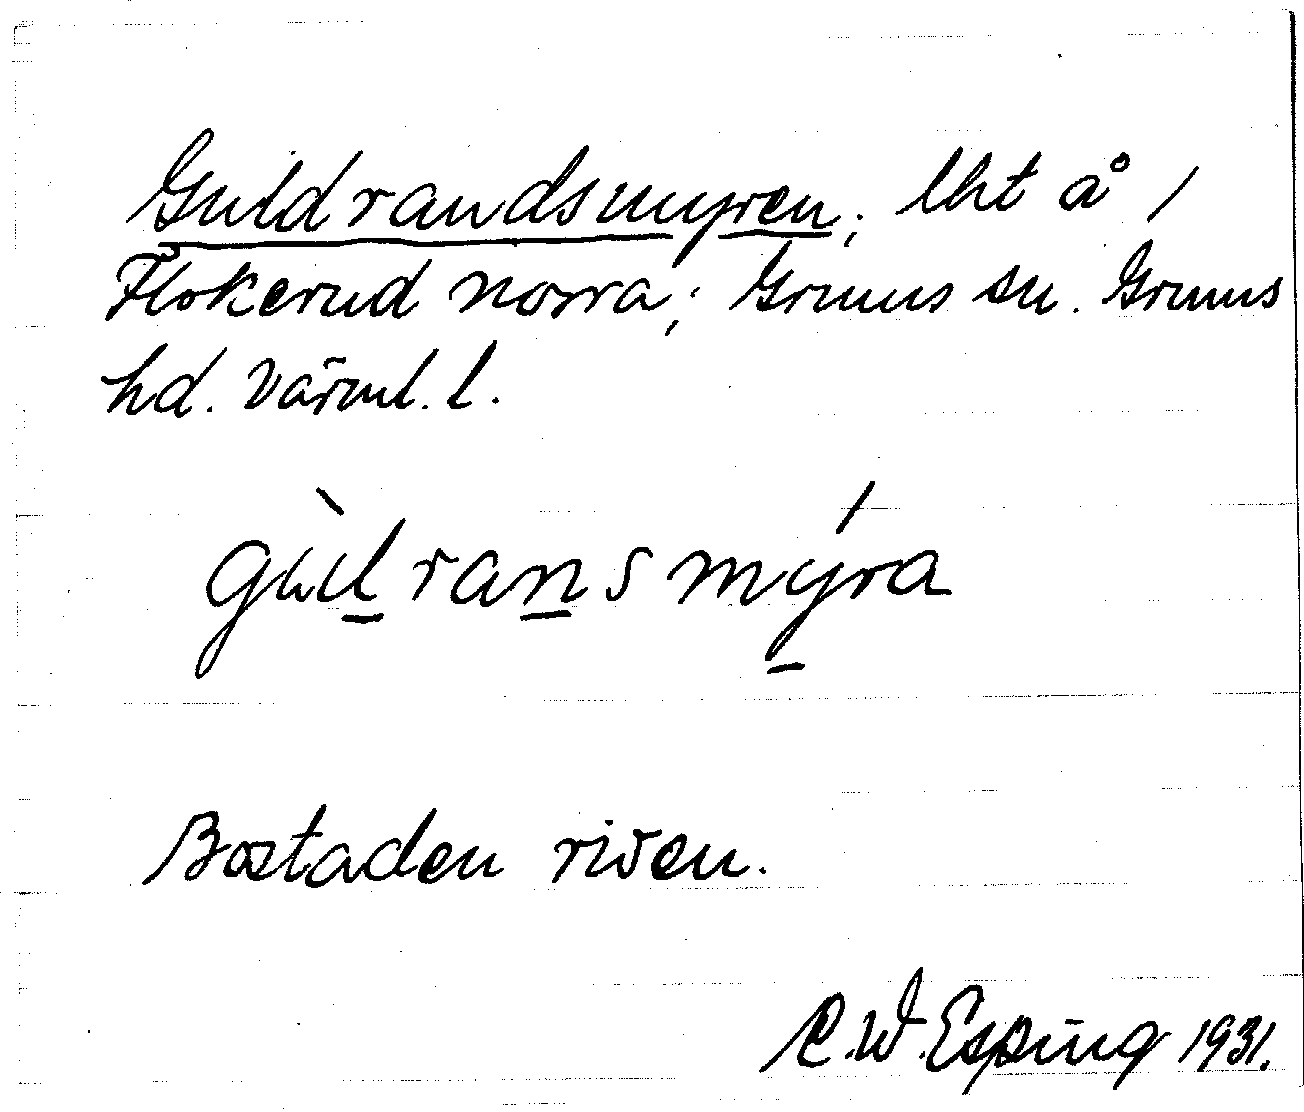 Guldrandsmyren; lht å /
Flokerud norra; Grums sn. Grums
hd. Värml. l.
gùl̲ran̲smý̲ra
Bostaden riven.
C.W. Esping 1931.